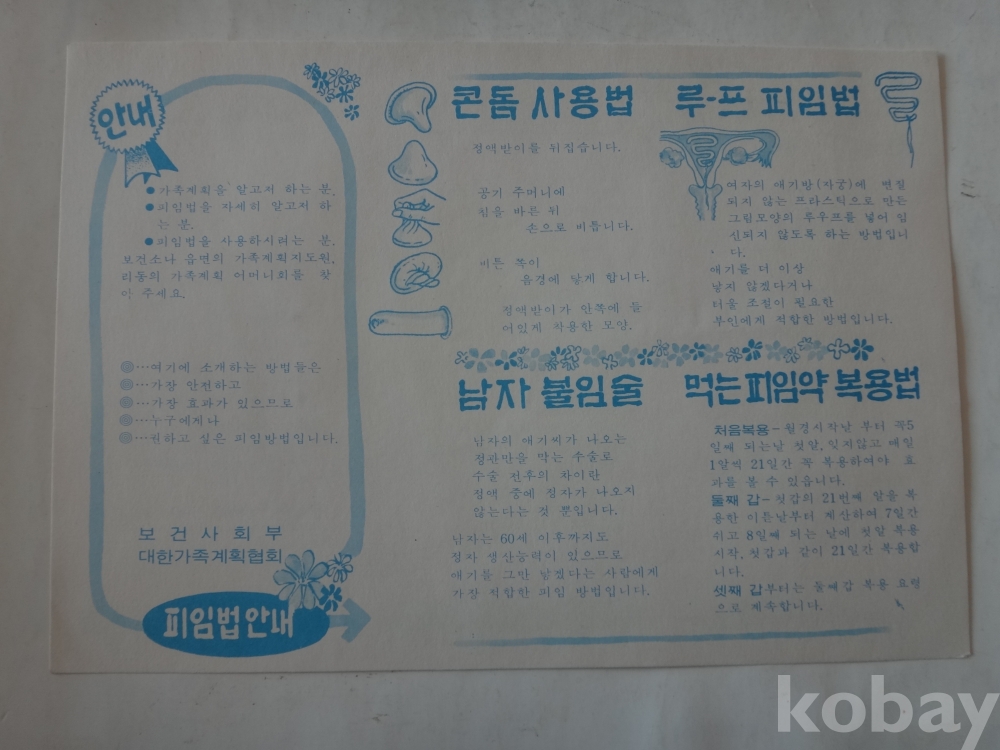 안내
● 가족계획을 알고저 하는 분.
● 피임법을 자세히 알고저 하
는 분.
● 피임법을 사용하시려는 분.
보건소나 읍면의 가족계획지도원,
리동의 가족계획 어머니회를 찾
아 주세요.
◎…여기에 소개하는 방법들은
◎…가장 안전하고
◎…가장 효과가 있으므로
◎…누구에게나
◎…권하고 싶은 피임방법입니다.
보건사회부
대한가족계획협회
피임법안내
콘돔 사용법
정액받이를 뒤집습니다.
공기 주머니에
침을 바른 뒤
손으로 비틉니다.
비튼 쪽이
음경에 닿게 합니다.
정액받이가 안쪽에 들
어있게 착용한 모양.
루-프 피임법
여자의 애기방(자궁)에 변질
되지 않는 프라스틱으로 만든
그림모양의 루우프를 넣어 임
신되지 않도록 하는 방법입니
다.
애기를 더 이상
낳지 않겠다거나
터울 조절이 필요한
부인에게 적합한 방법입니다.
남자 불임술
남자의 애기씨가 나오는
정관만을 막는 수술로
수술 전후의 차이란
정액 중에 정자가 나오지
않는다는 것 뿐입니다.
남자는 60세 이후까지도
정자 생산능력이 있으므로
애기를 그만 낳겠다는 사람에게
가장 적합한 피임 방법입니다.
먹는피임약 복용법
처음복용-월경시작날 부터 꼭5
일째 되는날 첫알, 잊지않고 매일
1알씩 21일간 꼭 복용하여야 효
과를 볼 수 있읍니다.
둘째 갑-첫갑의 21번째 알을 복
용한 이튿날부터 계산하여 7일간
쉬고 8일째 되는 날에 첫알 복용
시작, 첫갑과 같이 21일간 복용합
니다.
셋째 갑부터는 둘째갑 복용 요령
으로 계속합니다.
kobay